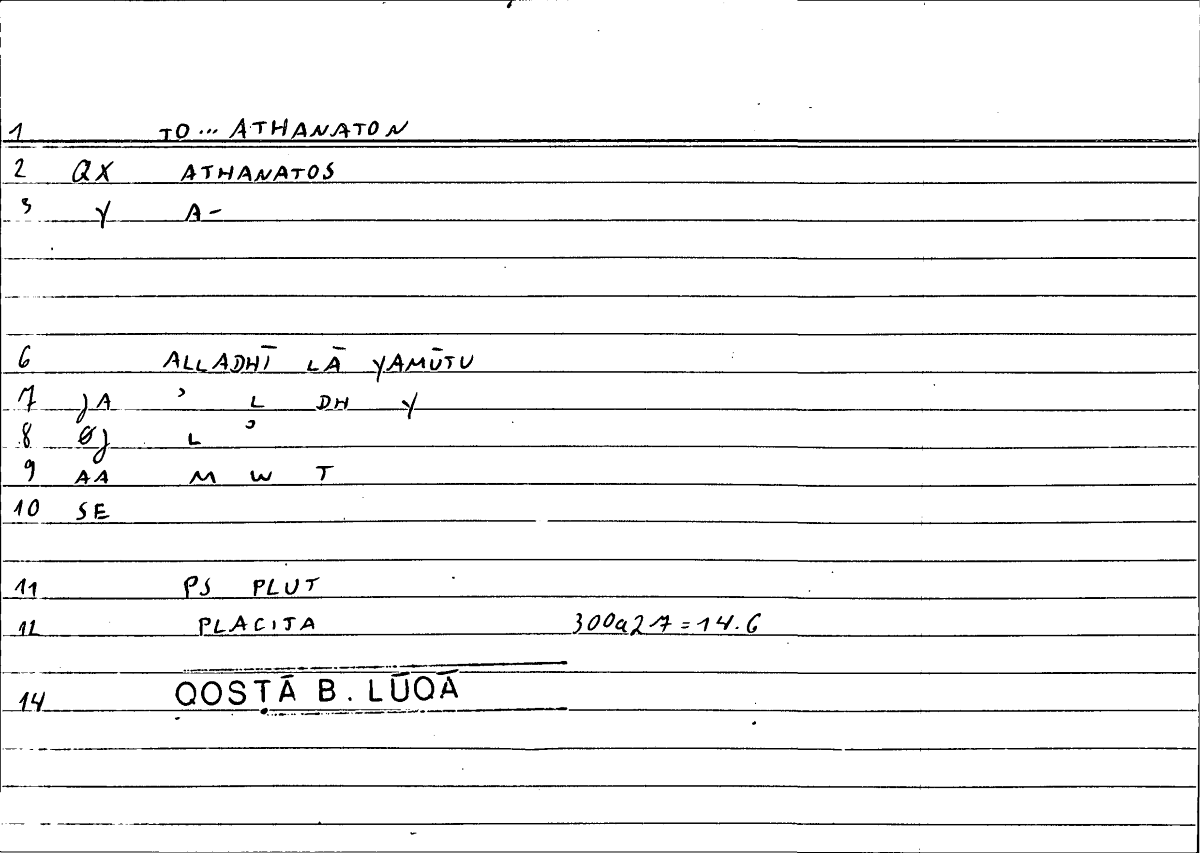 1 TO... ATHANATON
2 QX ATHANATOS
3 Y A-
6 ALLADHĪ LĀ YAMŪTU
7 JA ʾ L DH Y
8 ØJ L ʾ
9 AA M W T
10 SE
11 PS PLUT
12 PLACITA 300a27=14.6
14 QOSṬĀ B. LŪQĀ